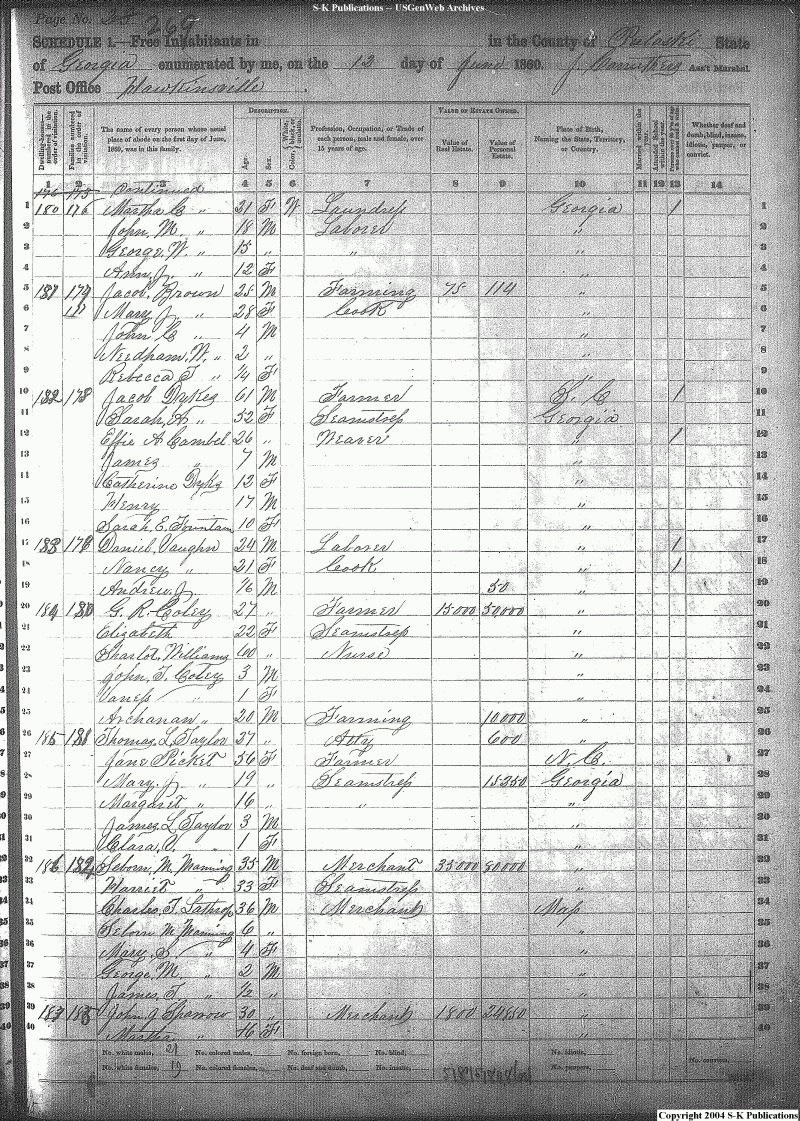 S-K Publications -- USGenWeb Archives
Page No. 25
269
SCHEDULE 1.—Free Inhabitants in in the County of Pulaski State
of Georgia enumerated by me, on the 12 day of June 1860. Ass't Marshal
Post Office Hawkinsville.
Dwelling-houses— numbered in the order of visitation.
Families numbered in the order of visitation.
The name of every person whose usual place of abode on the first day of June, 1860, was in this family.
DESCRIPTION.
Age.
Sex.
Color, White, black, or mulatto.
Profession, Occupation, or Trade of each person, male and female, over 15 years of age.
VALUE OF ESTATE OWNED.
Value of Real Estate.
Value of Personal Estate.
Place of Birth, Naming the State, Territory, or Country.
Married within the year.
Attended School within the year.
Whether deaf and dumb, blind, insane, idiotic, pauper, or convict.
1 2 3 4 5 6 7 8 9 10 11 12 13 14
Continued
1 180 176 Martha C " 21 F W Laundress Georgia / 1
2 John, M. " 18 M Laborer " 2
3 George, W. " 15 " " " 3
4 Ann, J. " 12 F " 4
5 181 177 Jacob, Brown 25 M Farming 75 114 " 5
6 Mary, J. " 28 F Cook " 6
7 John C " 4 M " 7
8 Needham, W. " 2 " " 8
9 Rebecca F " F " 9
10 182 178 Jacob Dykes 61 M Farmer S. C / 10
11 Sarah, A. " 52 F Seamstress Georgia 11
12 Effie A Cambel 26 " Weaver " / 12
13 James " 7 M " 13
14 Catherine Dyke 12 F " 14
15 Henry 17 M " 15
16 Sarah, E. Fountain 10 F " 16
17 183 Daniel, Vaughn 24 M Laborer " / 17
18 Nancy " 21 F Cook " / 18
19 Andrew, J M 50 " 19
20 184 180 G. R. Coley 27 " Farmer 15000 50,000 " 20
21 Elizabeth 22 F Seamstress " 21
22 Sharlot, Williams 60 " Nurse " 22
23 John, T. Coley 3 M " 23
24 1 F " 24
25 Archanan " 20 M Farming 10,000 " 25
26 185 181 Thomas, L, Taylor 27 " Atty 600 " 26
27 Jane Picket 56 F Farmer N. C. 27
28 Mary, J " 19 " Seamstress 15350 Georgia 28
29 Margaret " 16 " " " 29
30 James, L Taylor 3 M " 30
31 Clara, " 1 F " 31
32 186 182 Seborn, M. Manning 35 M Merchant 35000 80000 " 32
33 Harriet " 33 F Seamstress " 33
34 Charles, T. Lathrop 36 M Merchant Mass 34
35 Seborn M Manning 6 " " 35
36 Mary, S. " 4 F " 36
37 George, M. " 2 M " 37
38 James, T. " 1/2 " " 38
39 187 183 John, J Sparrow 30 " Merchant 1800 24850 " 39
40 Martha " 16 F " 40
No. white males, 21 No. colored males, No. foreign born, No. blind, No. idiotic,
No. white females, 19 No. colored females, No. deaf and dumb, No. insane, No. paupers, No. convicts,
Copyright 2004 S-K Publications